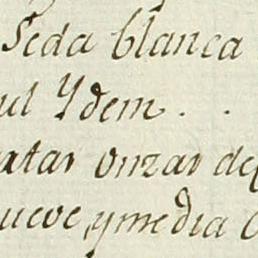 Seda blanca
ul Ydem . .
atar onzas de
ueve, y media